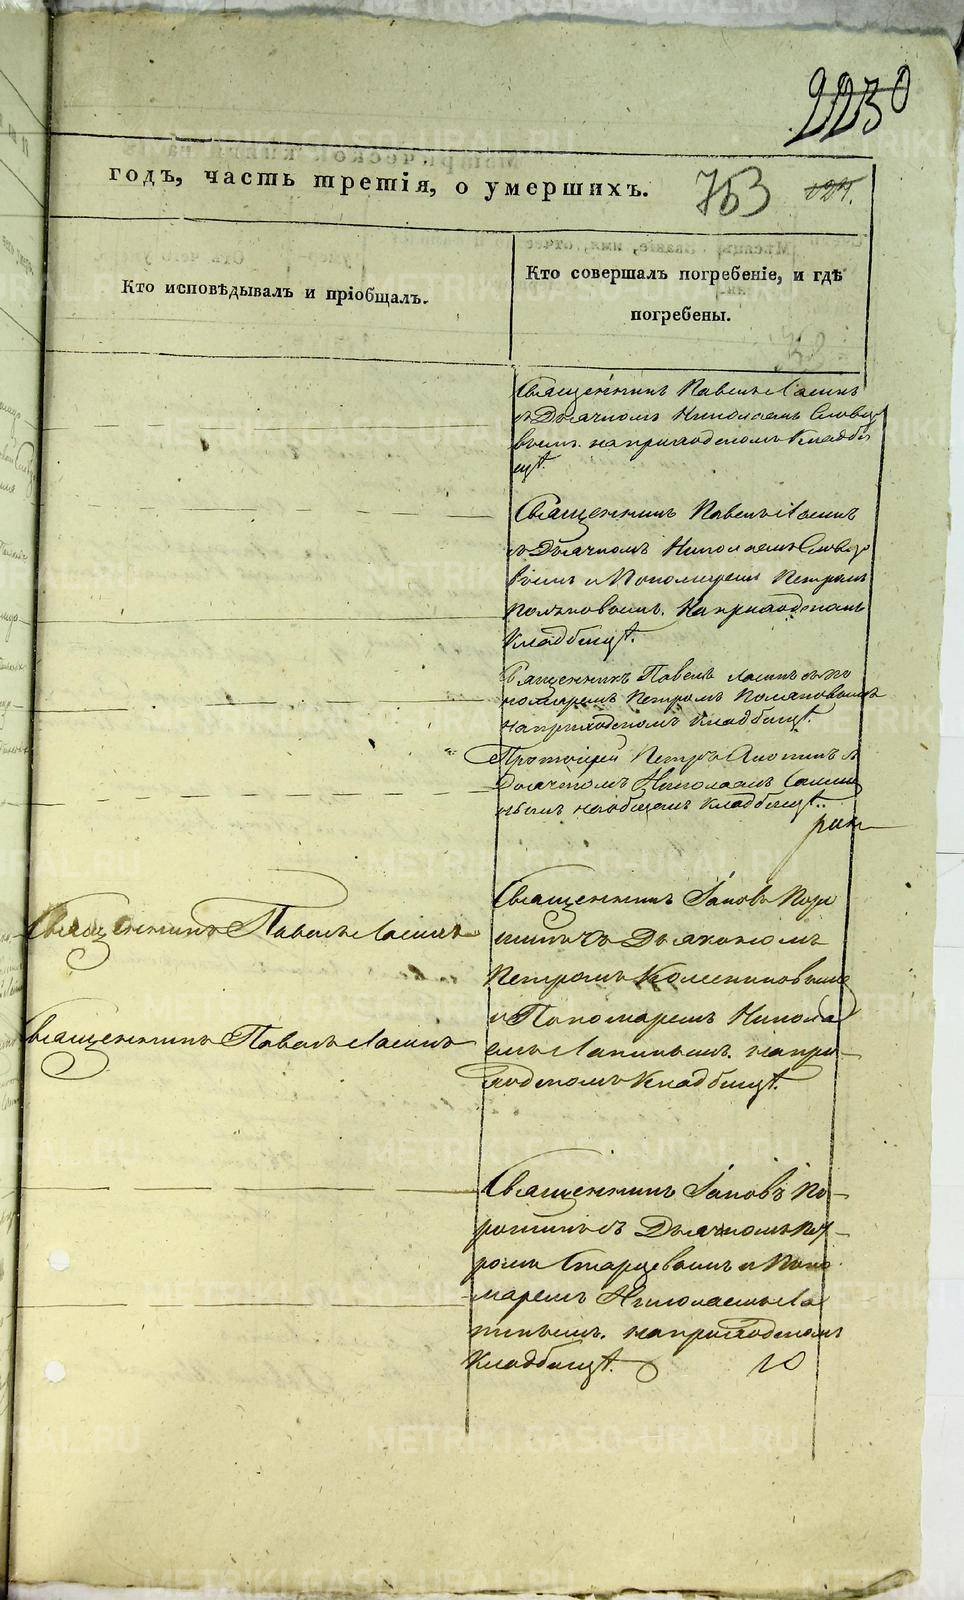 2230
годъ, часть третія, о умершихъ. 753
Кто исповѣдывалъ и пріобщалъ.
Кто совершалъ погребеніе, и гдѣ
погребены.
Священникъ Павелъ
съ Дьячкомъ Николаемъ Словцо
вымъ. на приходскомъ Кладби
щѣ.
Священникъ Павелъ
съ Дьячкомъ Николаемъ Словцо
вымъ и Пономаремъ Петромъ
Поляковымъ. На приходскомъ
Кладбищѣ.
Священникъ Павелъ съ по
номаремъ Петромъ Поляковымъ
на приходскомъ Кладбищѣ.
Протоіерей Петръ съ
Дьячкомъ Николаемъ
нымъ на общемъ Кладбищѣ.
Священникъ Павелъ
Священникъ Іаковъ Поро
шинъ съ Дьякономъ
Петромъ Колесниковымъ
и Пономаремъ Никола
емъ Лапинымъ. на при-
ходскомъ Кладбищѣ.
Священникъ Павелъ
Священникъ Іаковъ По-
рошинъ съ Дьячкомъ Пет-
ромъ Старцевымъ и Поно
маремъ Николаемъ Ла
пинымъ. на приходскомъ
Кладбищѣ.
METRIKI.GASO-URAL.RU